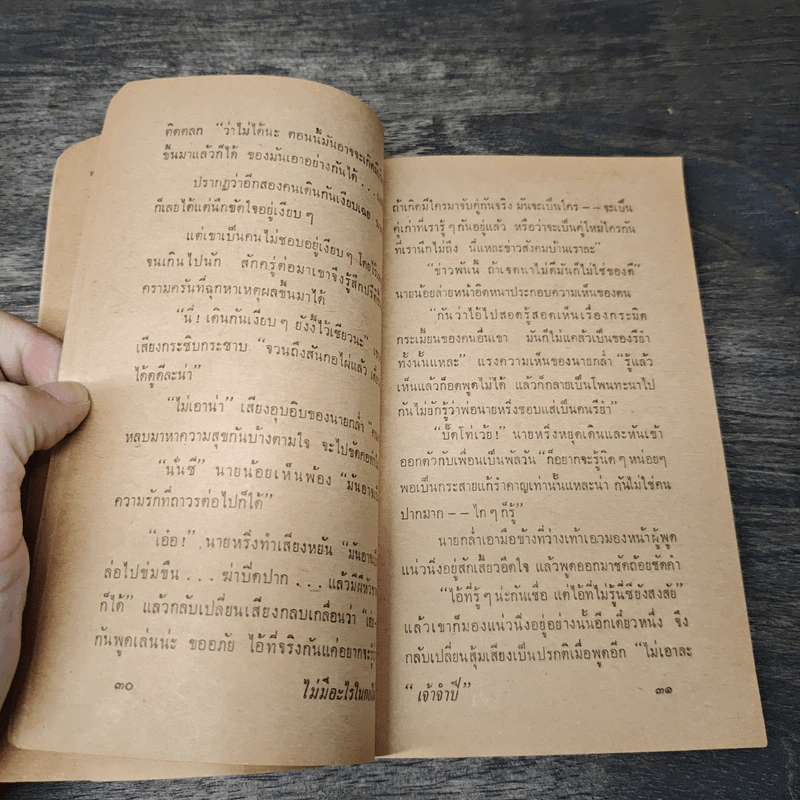 คิดตลก “ว่าไม่ได้นะ ตอนนี้มันอาจจะเกิด
ขึ้นมาแล้วก็ได้ ของมันเอาอย่างกันได้ . . .
ปรากฏว่าอีกสองคนเดินกันเงียบเฉย
ก็เลยได้แต่นึกขัดใจอยู่เงียบ ๆ
แต่เขาเป็นคนไม่ชอบอยู่เงียบ ๆ
จนเกินไปนัก สักครู่ต่อมาเขาจึงรู้สึก
ครามครันที่ฉุกหาเหตุผลขึ้นมาได้
“นี่! เดินกันเงียบ ๆ ยังงี้ไว้เชียวนะ”
เสียงกระซิบกระซาบ “จวนถึงสันกอไผ่แล้ว
ได้ดูดีละน่า”
“ไม่เอาน่า” เสียงอุบอิบของนายกล่ำ
หลบมาหาความสุขกันบ้างตามใจ จะไปขัดคอ
“นั่นซี” นายน้อยเห็นพ้อง “มันอาจ
ความรักที่ถาวรต่อไปก็ได้”
“เอ๋อ!” นายหริ่งทำเสียงหยัน “มันอาจ
ล่อไปข่มขืน . . . ฆ่าปิดปาก . . . แล้วมีผี
ก็ได้” แล้วกลับเปลี่ยนเสียงกลบเกลื่อนว่า
กันพูดเล่นน่ะ ขออภัย ไอ้ที่จริงกันแค่อยากจะ
๓๐ ไม่มีอะไรใน
ถ้าเกิดมีใครมาจับคู่กันจริง มันจะเป็นใคร –– จะเป็น
คู่เก่าที่เรารู้ ๆ กันอยู่แล้ว หรือว่าจะเป็นคู่ใหม่ใครกัน
ที่เรานึกไม่ถึง นี่แหละข่าวสังคมบ้านเราละ”
“ข่าวพันนี้ ถ้าเจตนาไม่ดีมันก็ไม่ใช่ของดี”
นายน้อยส่ายหน้าอิดหนาประกอบความเห็นของตน
“กันว่าไอ้ไปสอดรู้สอดเห็นเรื่องกระมิด
กระเมี้ยนของคนอื่นเขา มันก็ไม่แคล้วเป็นของรีย๋า
ทั้งนั้นแหละ” แรงความเห็นของนายกล่ำ “รู้แล้ว
เห็นแล้วก็อดพูดไม่ได้ แล้วก็กลายเป็นโพนทะนาไป
กันไม่ยักรู้ว่าพ่อนายหริ่งชอบแส่เป็นคนรีย๋า”
“ปั๊ดโท่เว้ย!” นายหริ่งหยุดเดินและหันเข้า
ออกตัวกับเพื่อนเป็นพัลวัน “ก็อยากจะรู้นิด ๆ หน่อยๆ
พอเป็นกระสายแก้รำคาญเท่านั้นแหละน่า กันไม่ใช่คน
ปากมาก –– ไก ๆ ก็รู้”
นายกล่ำเอามือข้างที่ว่างเท้าเอวมองหน้าผู้พูด
แน่วนิ่งอยู่สักเสี้ยวอึดใจ แล้วพูดออกมาชัดถ้อยชัดคำ
“ไอ้ที่รู้ ๆ น่ะกันเชื่อ แต่ไอ้ที่ไม่รู้นี่ซียังสงสัย”
แล้วเขาก็มองแน่วนิ่งอยู่อย่างนั้นอีกเดี๋ยวหนึ่ง จึง
กลับเปลี่ยนสุ้มเสียงเป็นปรกติเมื่อพูดอีก “ไม่เอาละ
“ เจ้าจำปี” ๓๑